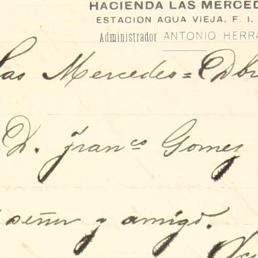 HACIENDA LAS MERCED
ESTACION AGUA VIEJA, F. I.
Administrador ANTONIO HERRA
Las Mercedes = Obr
D. Franco Gomez
señor y amigo.